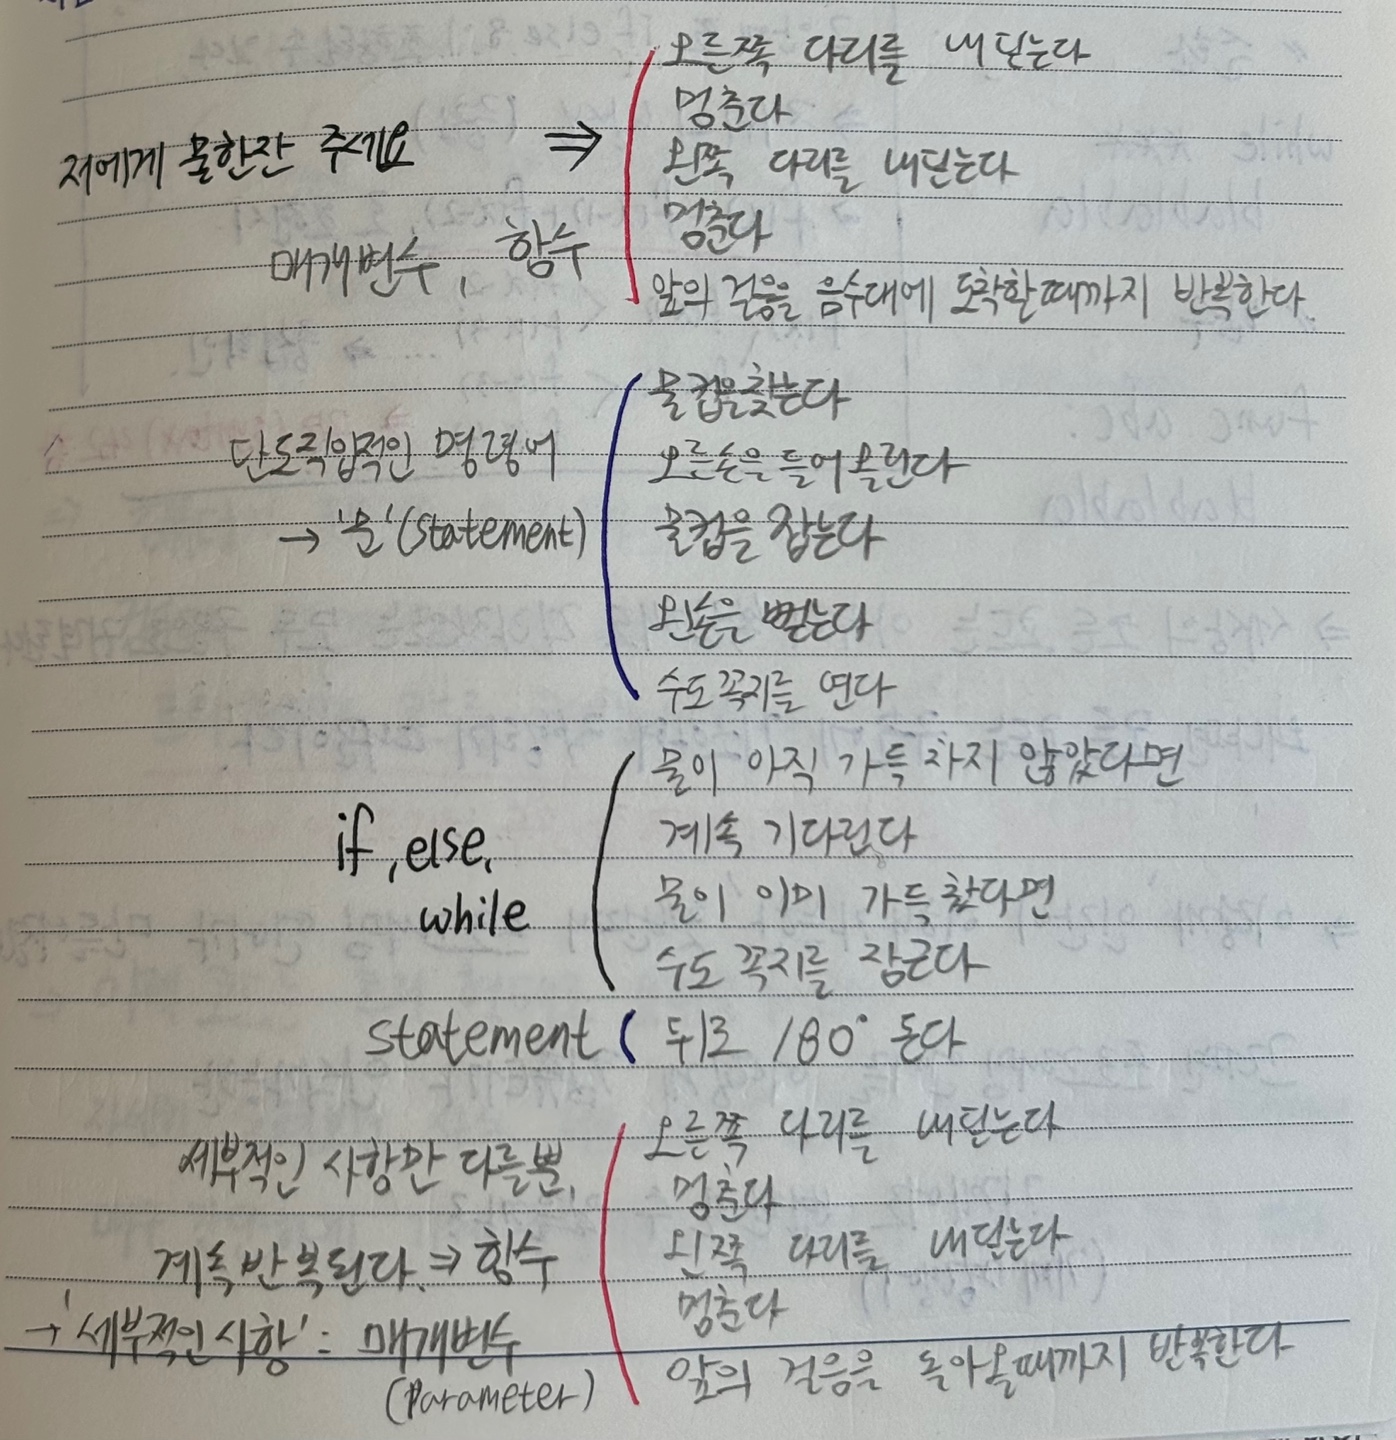 오른쪽 다리를 내딛는다
멈춘다
저에게 물한잔 주세요 ⇒ 왼쪽 다리를 내딛는다
멈춘다
매개변수, 함수
앞의 걸음을 음수대에 도착할때까지 반복한다.
물컵을 찾는다
단도직입적인 명령어 오른손을 들어 올린다
→ '문'(statement) 물컵을 잡는다
왼손을 뻗는다
수도꼭지를 연다
물이 아직 가득 차지 않았다면
if, else, 계속 기다린다
while 물이 이미 가득찼다면
수도꼭지를 잠근다
statement 뒤로 180° 돈다
오른쪽 다리를 내딛는다
세부적인 사항만 다를뿐, 멈춘다
계속 반복된다. ⇒ 함수 왼쪽 다리를 내딛는다
멈춘다
→ '세부적인사항' : 매개변수
(Parameter) 앞의 걸음을 돌아올때까지 반복한다